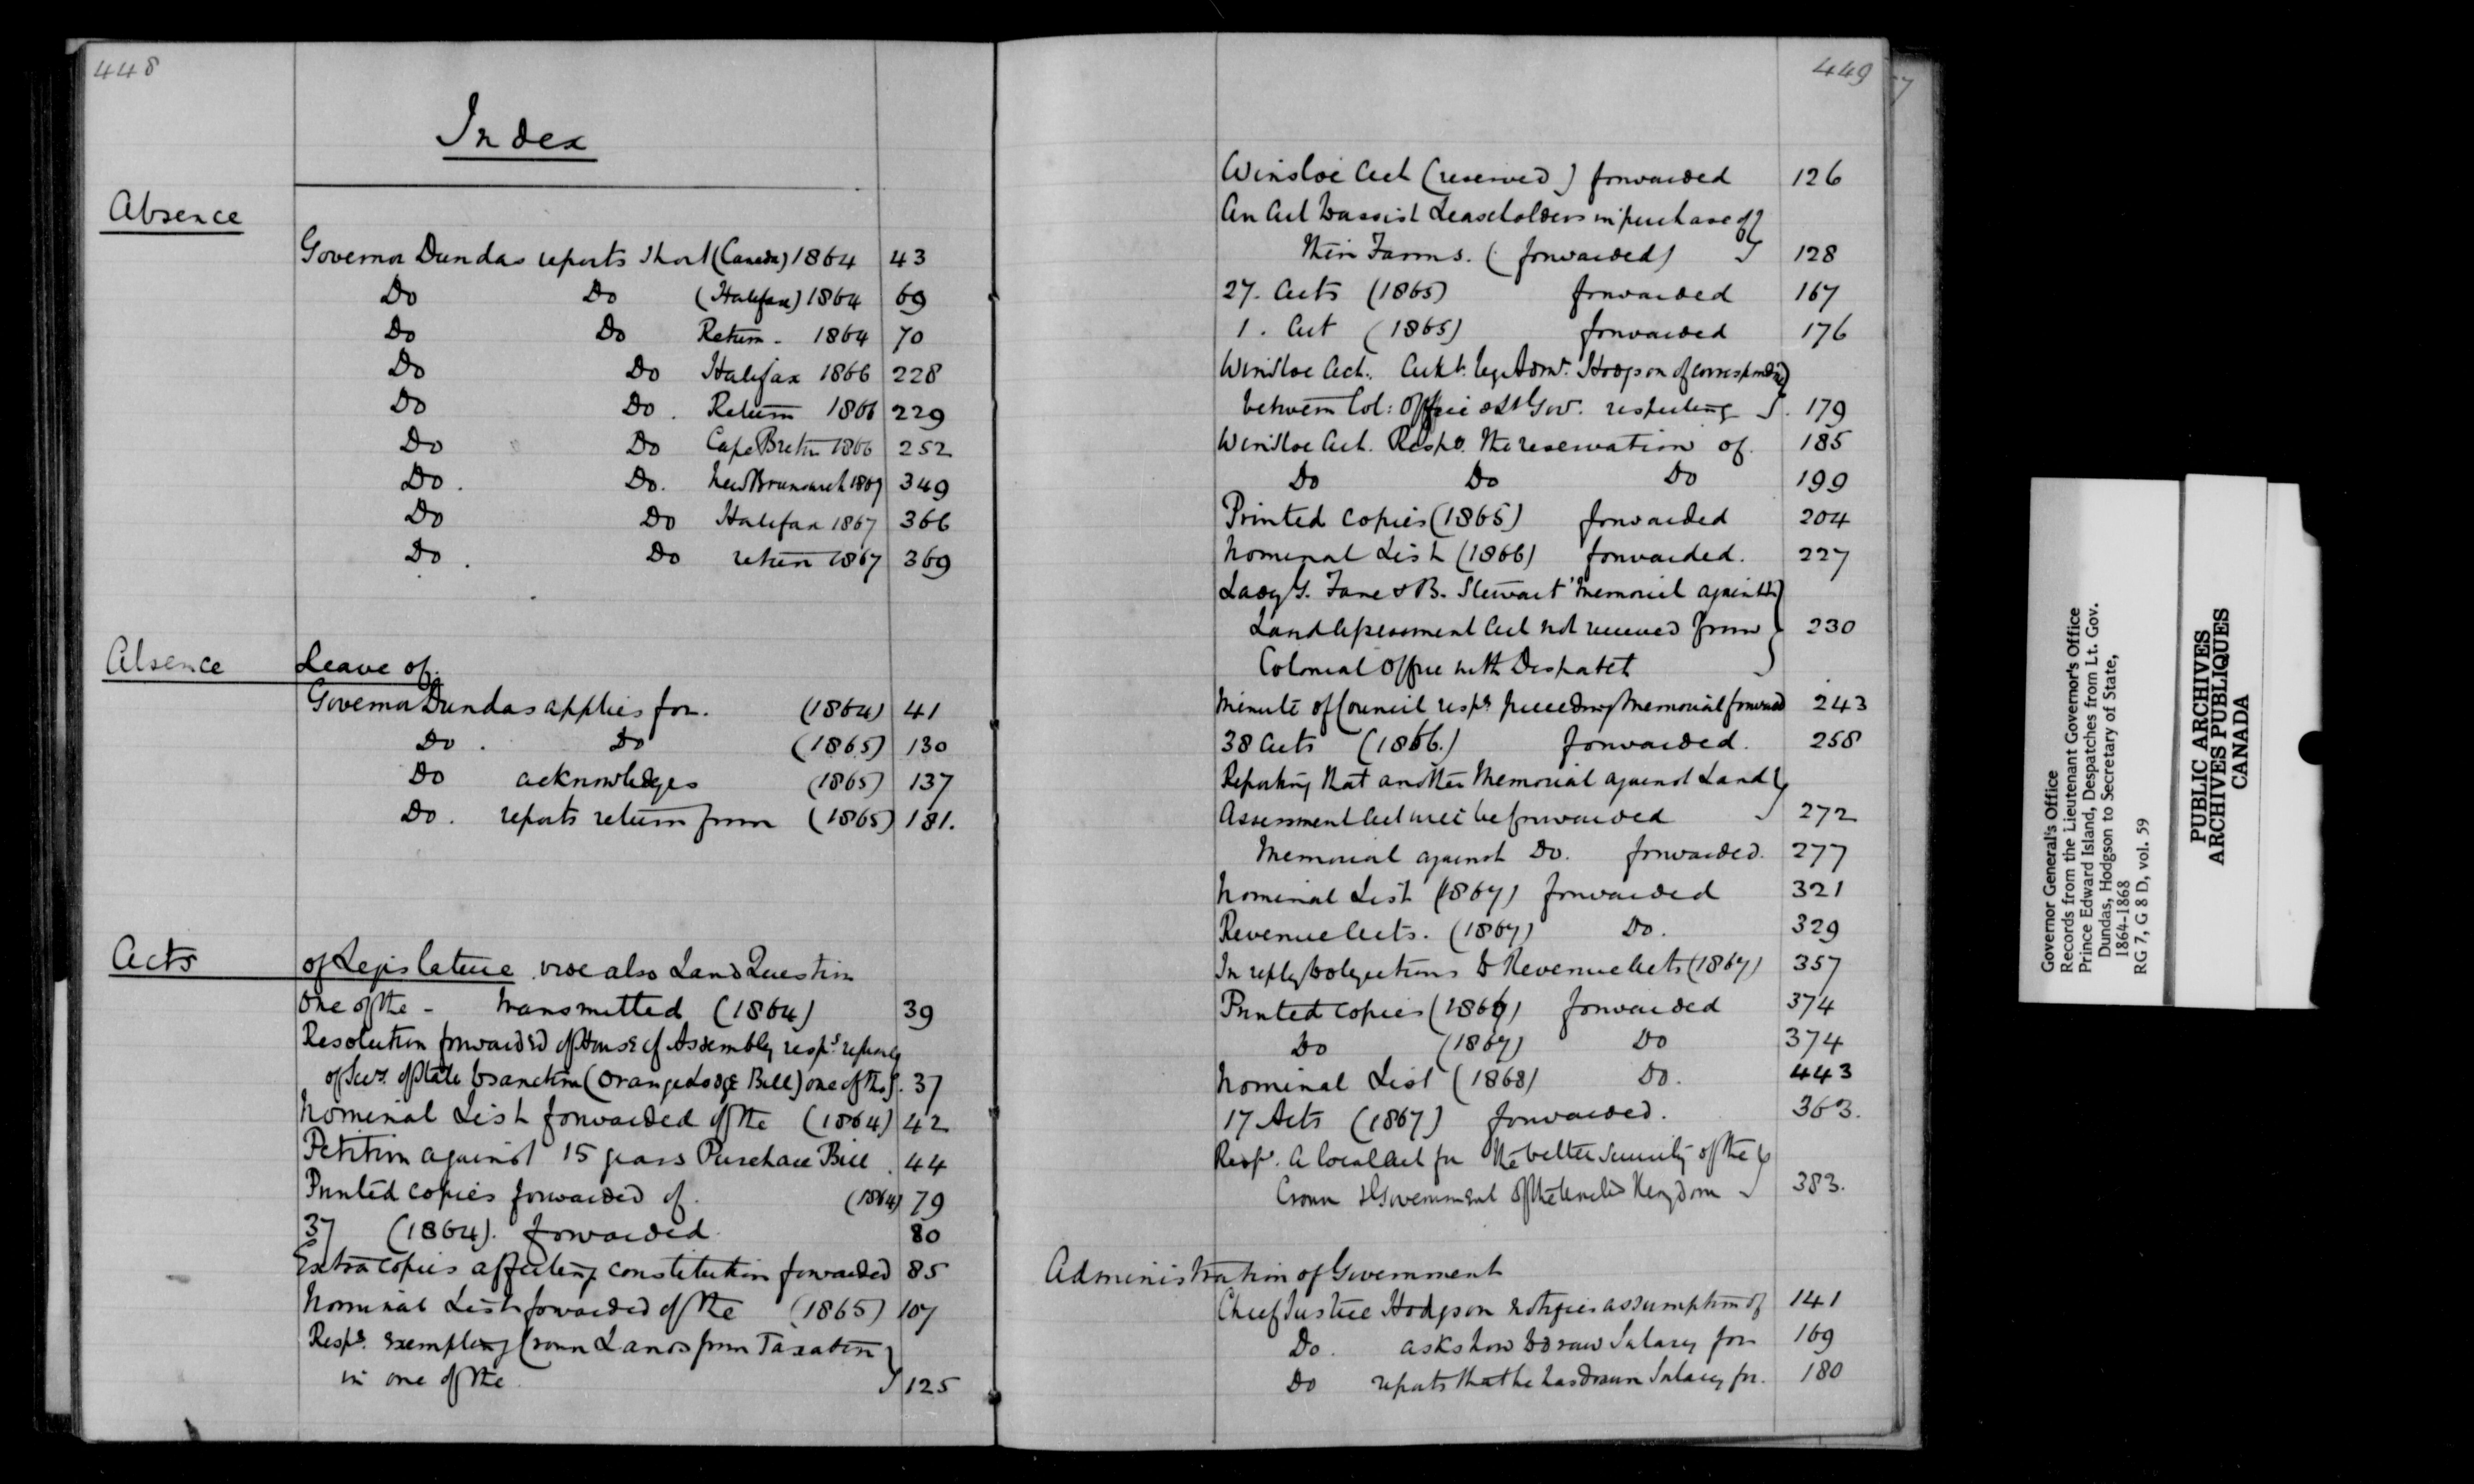 448
Index
Absence
Governor Dundas reports short (Canada) 1864 43
Do Do (Halifax) 1864 69
Do Do Return - 1864 70
Do Do Halifax 1866 228
Do Do. Return 1866 229
Do Do Cape Breton 1866 252
Do. Do. New Brunswick 1867 349
Do Do Halifax 1867 366
Do. Do return 1867 369
Absence Leave of.
Governor Dundas applies for. (1864) 41
Do. Do (1865) 130
Do acknowledges (1865) 137
Do. reports return from (1865) 181.
Acts of Legislature vide also Land Question
One of the - transmitted (1864) 39
Resolution forwarded of House of Assembly resp.g refusal
of Secy. of State to sanction (Orange Lodge Bill) one of the 37
Nominal List forwarded of the (1864) 42
Petition against 15 years Purchase Bill. 44
Printed copies forwarded of. (1864) 79
37 (1864). forwarded. 80
Extra copies affecting constitution forwarded 85
Nominal List forwarded of the (1865) 107
Resp.g exempting Crown Lands from Taxation
in one of the 125
449
Winsloe Act (reserved) forwarded 126
An Act to assist Leaseholders in purchase of
their Farms. (forwarded) 128
27. Acts (1865) forwarded 167
1. Act (1865) forwarded 176
Winsloe Act. Ackt. by Admr. Hodgson of correspondence
between Col: Office & Lt Gov. respecting 179
Winsloe Act. Respg. the reservation of. 185
Do Do Do 199
Printed copies (1865) forwarded 204
Nominal List (1866) forwarded. 227
Lady G. Fane & B. Stewart Memorial against
Land Assessment Act not received from 230
Colonial Office with Despatch
Minute of Council respg preceding Memorial forwarded 243
38 Acts (1866.) forwarded. 258
Reporting that another Memorial against Land
Assessment Act will be forwarded 272
Memorial against Do. forwarded. 277
Nominal List (1867) forwarded 321
Revenue Acts. (1867) Do. 329
In reply to objections to Revenue Acts (1867) 357
Printed copies (1866) forwarded 374
Do (1867) Do 374
Nominal List (1868) Do. 443
17 Acts (1867) forwarded. 363.
Respg. A local Act for the better security of the
Crown & Government of the United Kingdom 383.
Administration of Government
Chief Justice Hodgson notifies assumption of 141
Do. asks how to draw Salary for 169
Do reports that he has drawn Salary for. 180
Governor General's Office
Records from the Lieutenant Governor's Office
Prince Edward Island, Despatches from Lt. Gov.
Dundas, Hodgson to Secretary of State,
1864-1868
RG 7, G 8 D, vol. 59
PUBLIC ARCHIVES
ARCHIVES PUBLIQUES
CANADA